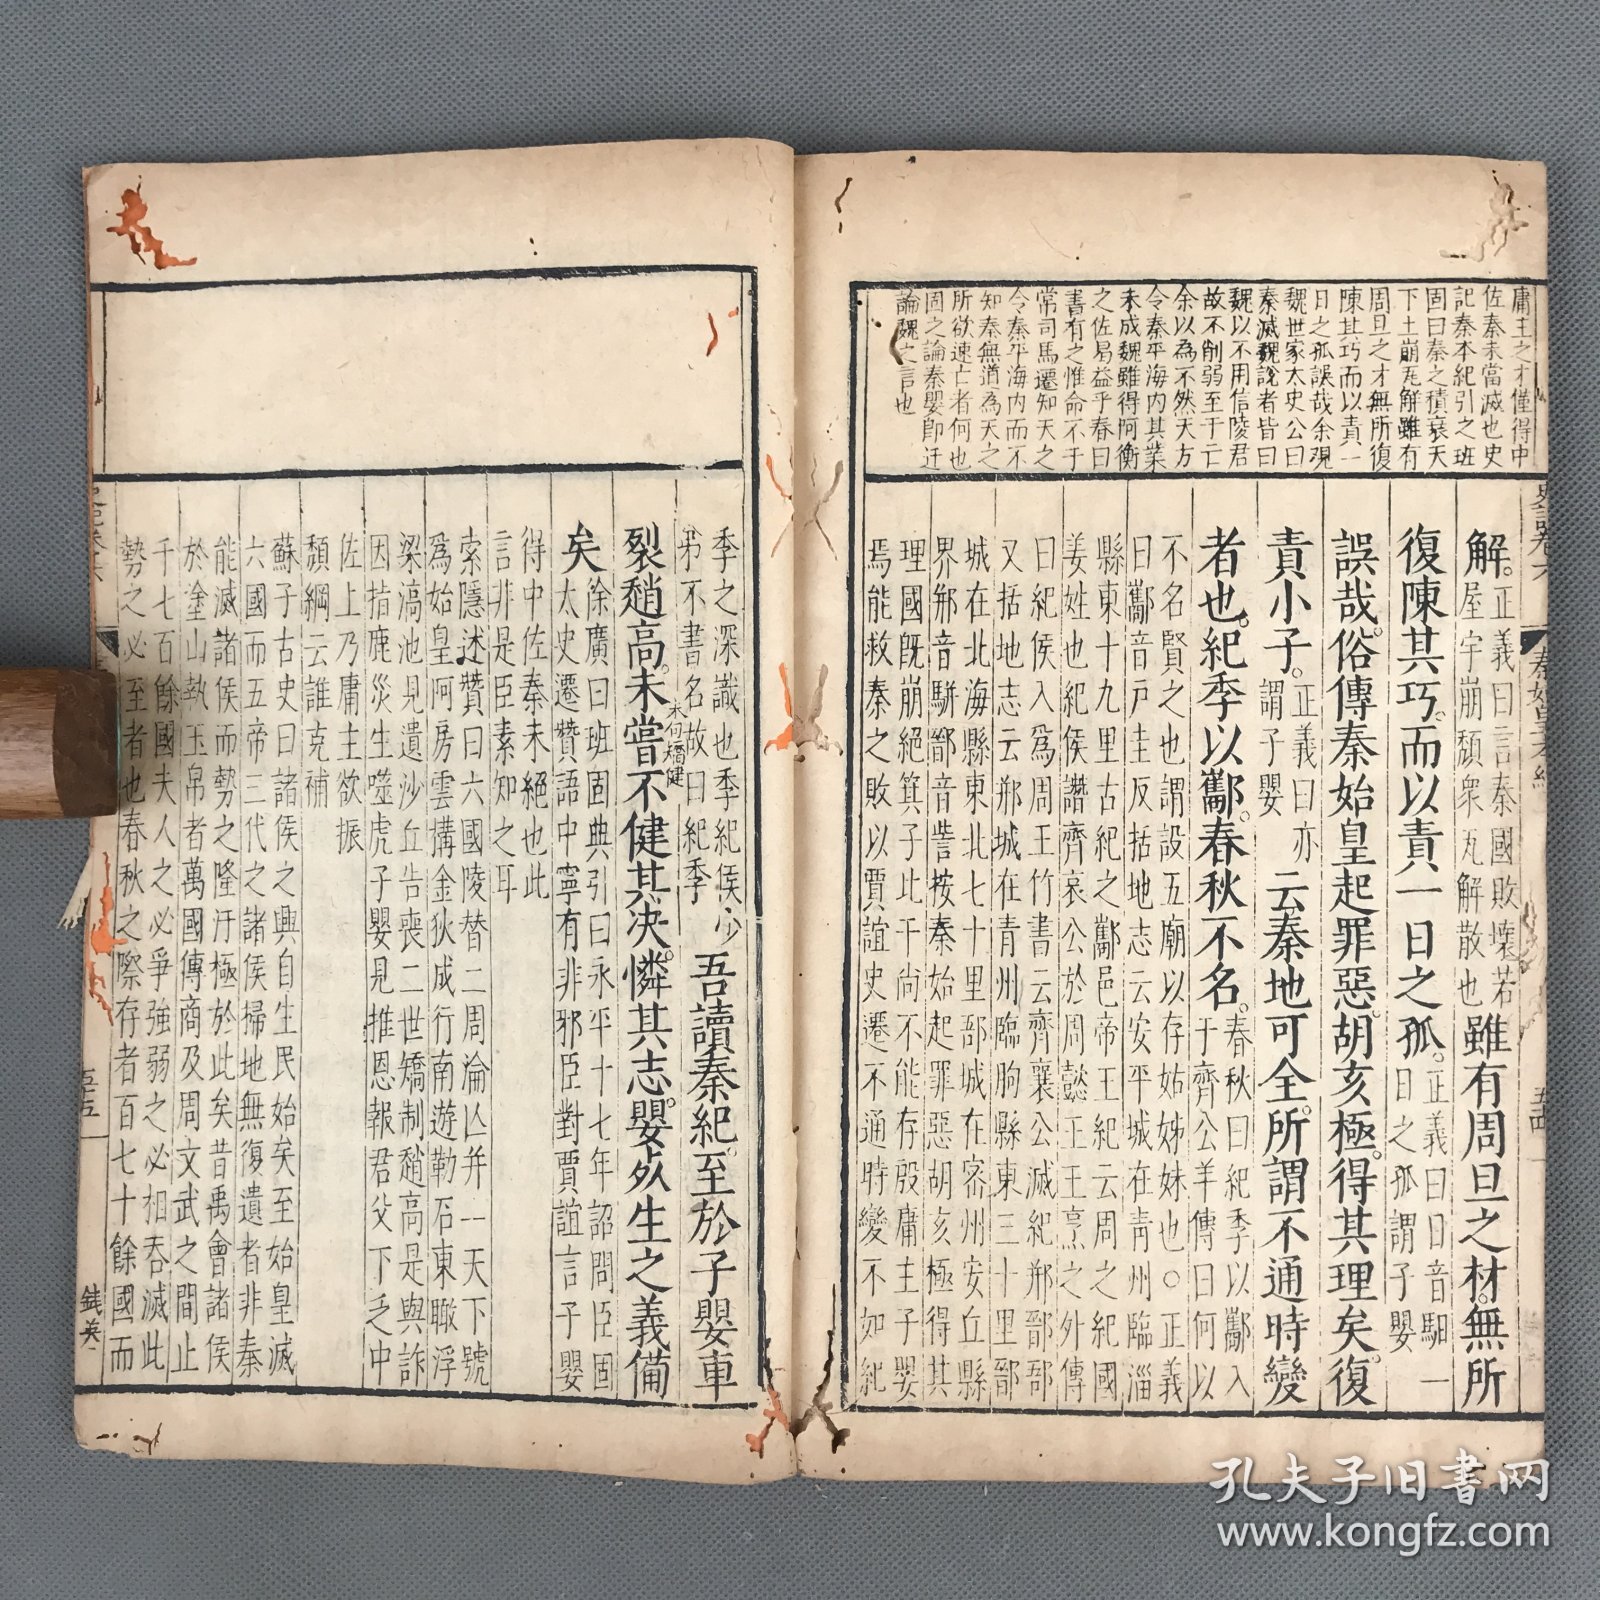 庸主之才僅得中
佐秦未當滅也史
記秦本紀引之班
固曰秦之積衰天
下土崩瓦解雖有
周旦之才無所復
陳其巧而以責一
日之孤誤哉余覌
魏世家太史公曰
秦滅魏說者皆曰
魏以不用信陵君
故不削弱至于亡
余以為不然天方
令秦平海内其業
未成魏雖得阿衡
之佐曷益乎春曰
書有之惟命不于
常司馬遷知天之
令秦平海内而不
知秦無道為天之
所欲速亡者何也
固之論秦嬰即迁
論魏之言也
解。正義曰言秦國敗壞若
屋宇崩頹衆瓦解散也
雖有周旦之材。無所
復陳其巧。而以責一日之孤。正義曰日音馹一
日之孤謂子嬰
誤哉。俗傳秦始皇起罪惡。胡亥極。得其理矣。復
責小子。正義曰亦
謂子嬰
云秦地可全。所謂不通時變
者也。紀季以酅。春秋不名。春秋曰紀季以酅入
于齊公羊傳曰何以
不名賢之也謂設五廟以存姑姊妹也〇正義
曰酅音户圭反括地志云安平城在青州臨淄
縣東十九里古紀之酅邑帝王紀云周之紀國
姜姓也紀侯譖齊哀公於周懿王王烹之外傳
曰紀侯入為周王竹書云齊襄公滅紀郱鄑郚
又括地志云郱城在青州臨朐縣東三十里鄑
城在北海縣東北七十里郚城在密州安丘縣
界郱音駢鄑音訾桉秦始起罪惡胡亥極得其
理國既崩絕箕子比干尚不能存殷庸主子嬰
焉能救秦之敗以賈誼史遷不通時變不如紀
史記卷六
秦始皇本紀
五十四
季之深識也季紀侯少
弟不書名故曰紀季
吾讀秦紀。至於子嬰車
裂趙高。未嘗不健其决。憐其志。嬰死生之義備
矣。徐廣曰班固典引曰永平十七年詔問臣固
太史遷贊語中寧有非邪臣對賈誼言子嬰
得中佐秦未絕也此
言非是臣素知之耳
索隱述贊曰六國陵替二周淪亾并一天下號
為始皇阿房雲構金狄成行南遊勒石東瞰浮
梁滈池見遺沙丘告喪二世矯制趙高是與詐
因指鹿災生噬虎子嬰見推恩報君父下乏中
佐上乃庸主欲振
頹綱云誰克補
蘇子古史曰諸侯之興自生民始矣至始皇滅
六國而五帝三代之諸侯掃地無復遺者非秦
能滅諸侯而勢之隆汙極於此矣昔禹會諸侯
於塗山執玉帛者萬國傳商及周文武之間止
千七百餘國夫人之必爭強弱之必相吞滅此
勢之必至者也春秋之際存者百七十餘國而
五十五
錢英
孔夫子旧书网
www.kongfz.com